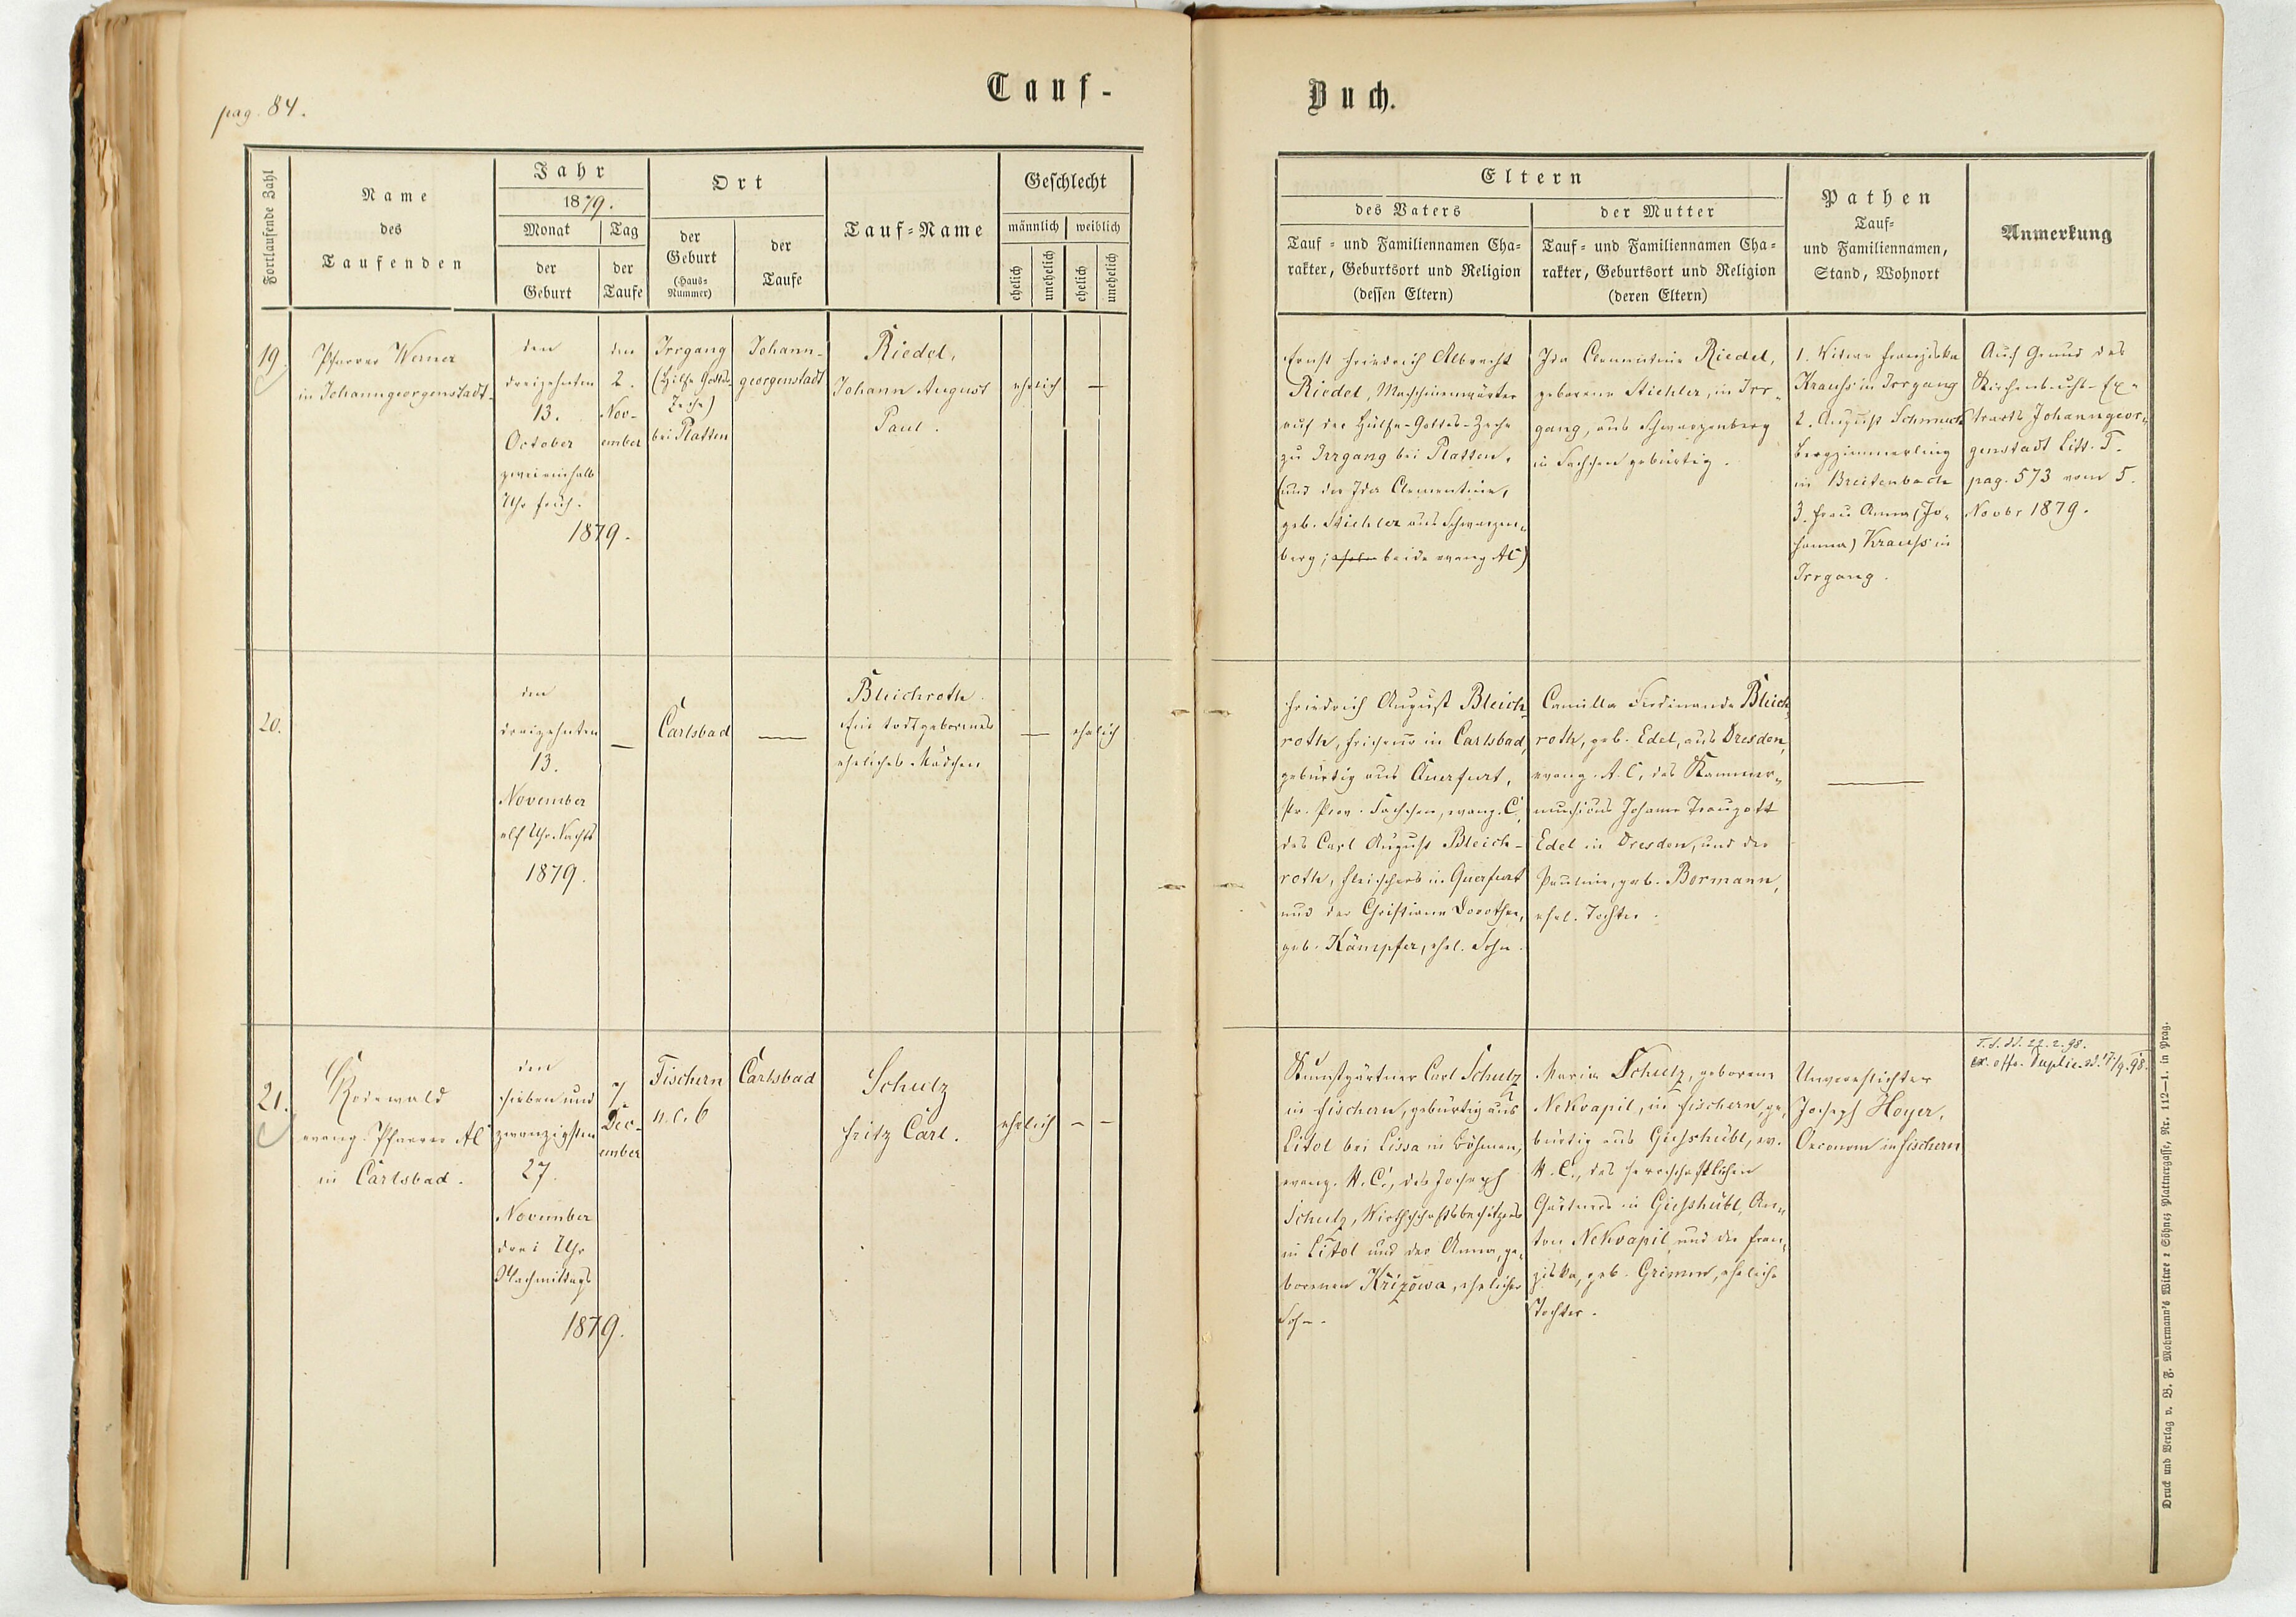 pag. 84.
Tauf-
Buch.
Fortlaufende Zahl
Name
des
Taufenden
Jahr
1879.
Monat
Tag
der
Geburt
der
Taufe
Ort
der
Geburt
(Haus-
Nummer)
der
Taufe
Tauf-Name
Geschlecht
männlich
weiblich
ehelich
unehelich
ehelich
unehelich
Eltern
des Vaters
der Mutter
Tauf- und Familiennamen Cha-
rakter, Geburtsort und Religion
(dessen Eltern)
Tauf- und Familiennamen Cha-
rakter, Geburtsort und Religion
(deren Eltern)
Pathen
Tauf-
und Familiennamen,
Stand, Wohnort
Anmerkung
19.
Pfarrer Werner
in Johanngeorgenstadt
den
dreizehnten
13.
October
zweieinhalb
Uhr früh.
1879.
den
2.
Nov-
ember
Irrgang
(Hilfe Gottes-
Zeche)
bei Platten
Johann-
georgenstadt
Riedel,
Johann August
Paul.
ehelich
—
Ernst Friedrich Albrecht
Riedel, Maschinenwärter
auf der Hülfe-Gottes-Zeche
zu Irrgang bei Platten,
(und der Ida Clementine,
geb. Stiehler aus Schwarzen-
berg; beide evang. AC)
Ida Clementine Riedel,
geborene Stiehler, in Irr-
gang, aus Schwarzenberg
in Sachsen gebürtig.
1. Witwe Franziska
Krauss in Irrgang
2. August
Bergzimmerling
in Breitenbach
3. Frau Anna (Jo-
hanna) Krauss in
Irrgang.
Auf Grund des
Kirchenbuch-Ex-
tracts Johanngeor-
genstadt Litt. T.
pag. 573 vom 5.
Novbr 1879.
20.
den
dreizehnten
13.
November
elf Uhr Nachts
1879.
—
Carlsbad
—
Bleichroth.
Ein todtgeborenes
eheliches Mädchen
—
ehelich
Friedrich August Bleich-
roth, Friseur in Carlsbad,
gebürtig aus Querfurt,
Pr. Prov. Sachsen, evang. C,
des Carl August Bleich-
roth, Fleischers in Querfurt
und der Christiane Dorothea,
geb. Kämpfer, ehel. Sohn.
Camilla Ferdinande Bleich-
roth, geb. Edel, aus Dresden,
evang. A. C, des Kammer-
musicus Johann Traugott
Edel in Dresden, und der
Pauline, geb. Bormann,
ehel. Tochter.
—
21.
Rodewald
evang. Pfarrer AC
in Carlsbad.
den
sieben und
zwanzigsten
27.
November
drei Uhr
Nachmittags
1879.
7.
Dec-
ember
Fischern
n. c. 6
Carlsbad
Schulz
Fritz Carl.
ehelich
—
—
Kunstgärtner Carl Schulz
in Fischern, gebürtig aus
Litol bei Lissa in Böhmen,
evang. H. C., des Joseph
Schulz, Wirthschaftsbesitzers
in Litol und der Anna, ge-
borenen Křižowa, ehelicher
Sohn.
Maria Schulz, geborene
Nekvapil, in Fischern, ge-
bürtig aus Giesshübl, ev.
H. C., des herrschaftlichen
Gärtners in Giesshübl, An-
ton Nekvapil und der Fran-
ziska, geb. Grimm, eheliche
Tochter.
Unverehlichter
Joseph Hoyer,
Oeconom in Fischern
T. S. dd. 22. 2. 98.
ex. offo. Duplic. dd. 17/9. 98.
Druck und Verlag v. B. F. Mohrmann's Witwe & Söhne, Plattnergasse, Nr. 112—I. in Prag.